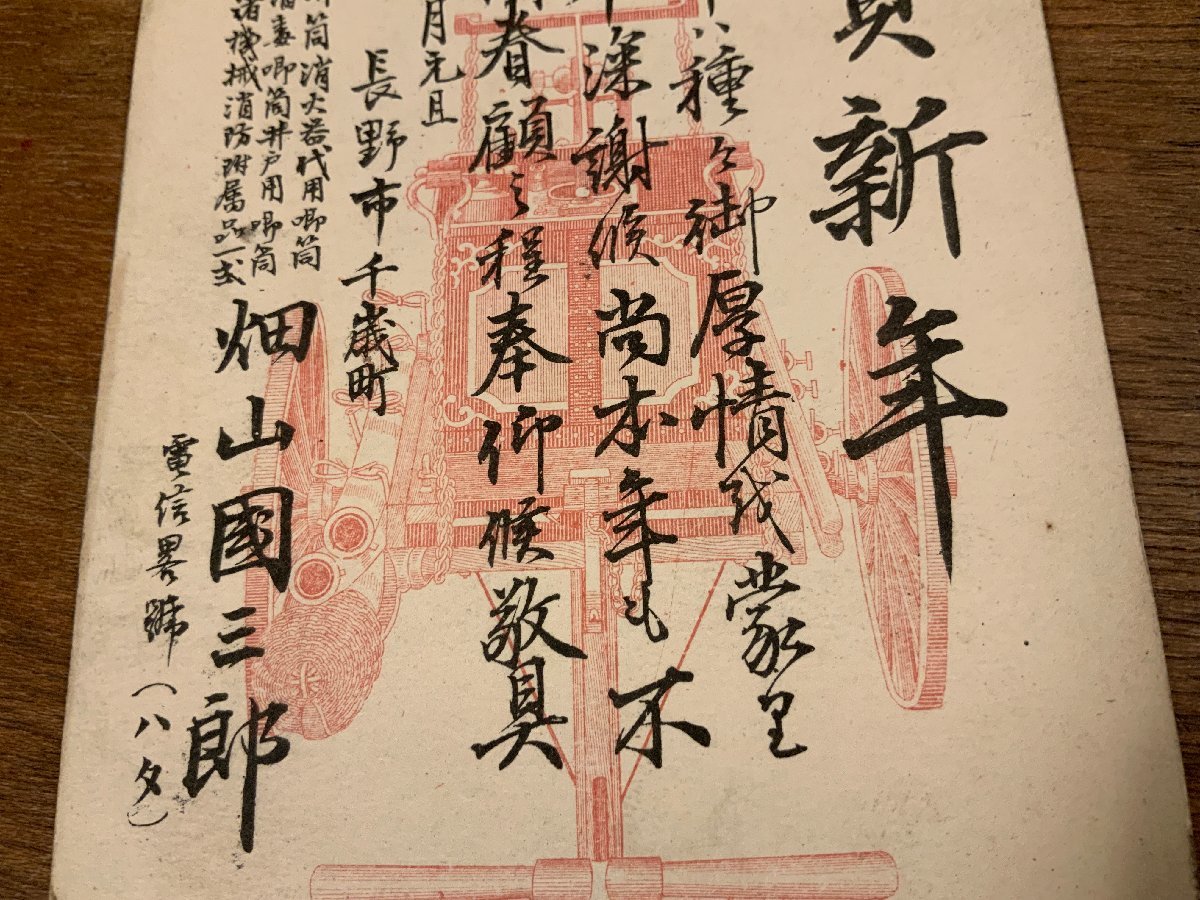 賀新年
年ハ種々御厚情ヲ蒙里
深謝候尚本年も不
眷顧之程奉仰候敬具
月元旦
長野市千歳町
筒消火器代用喞筒
消毒喞筒井戸用喞筒
諸機械消防附属品一式
畑山國三郎
電信畧號(ハタ)